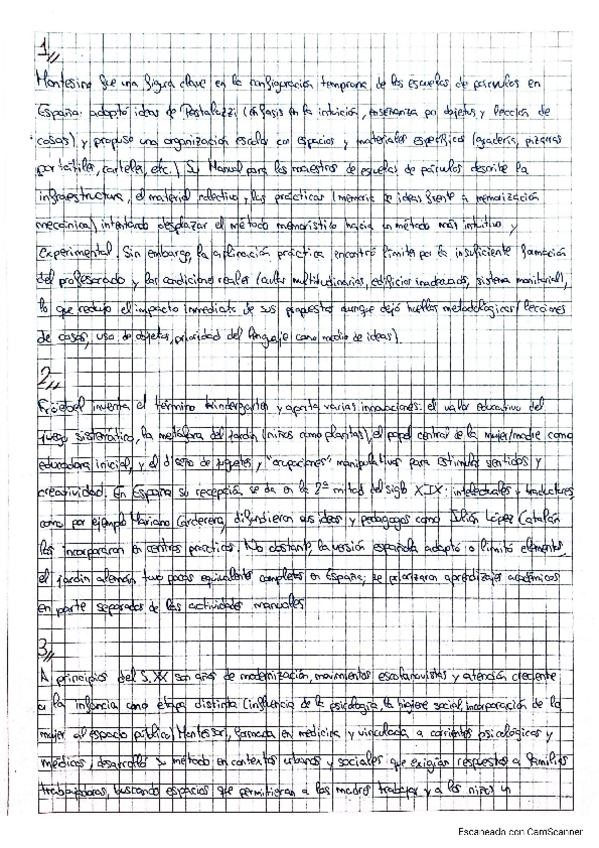 1//
Montesino fue una figura clave en la configuración temprana de las escuelas de párvulos en
España: adoptó ideas de Pestalozzi (énfasis en la intuición, enseñanza por objetos, y lección de
cosas), y propuso una organización escolar con espacios y materiales específicos (gradería, pizarras
portátiles, carteles, etc.) Su Manual para los maestros de escuelas de párvulos describe la
infraestructura, el material colectivo y las prácticas (memoria de ideas frente a memorización
mecánica) intentando desplazar el método memorístico hacia un método más intuitivo y
experimental. Sin embargo, la aplicación práctica encontró límites por la insuficiente formación
del profesorado y las condiciones reales (aulas multitudinarias, edificios inadecuados, sistema monitorial),
lo que redujo el impacto inmediato de sus propuestas aunque dejó huellas metodológicas (lecciones
de cosas, uso de objetos, prioridad del lenguaje como medio de ideas).
2//
Fröebel inventa el término kindergarten y aporta varias innovaciones: el valor educativo del
juego sistemático, la metáfora del jardín (niños como plantas), el papel central de la mujer/madre como
educadora inicial, y el diseño de juguetes y "ocupaciones" manipulativas para estimular sentidos y
creatividad. En España su recepción se da en la 2ª mitad del siglo XIX: intelectuales y traductores
como por ejemplo Mariano Carderera, difundieron sus ideas y pedagogos como Julián López Catalán
las incorporaron en centros prácticos. No obstante, la versión española adaptó o limitó elementos:
el jardín alemán tuvo pocos equivalentes completos en España; se priorizaron aprendizajes académicos
en parte separados de las actividades manuales
3//
A principios del S.XX son años de modernización, movimientos escolanovistas y atención creciente
a la infancia como etapa distinta (influencia de la psicología, la higiene social, incorporación de la
mujer al espacio público). Montessori, formada en medicina y vinculada a corrientes psicológicas y
médicas, desarrolló su método en contextos urbanos y sociales que exigían respuestas a familias
trabajadoras, buscando espacios que permitieran a las madres trabajar y a los niños un
Escaneado con CamScanner